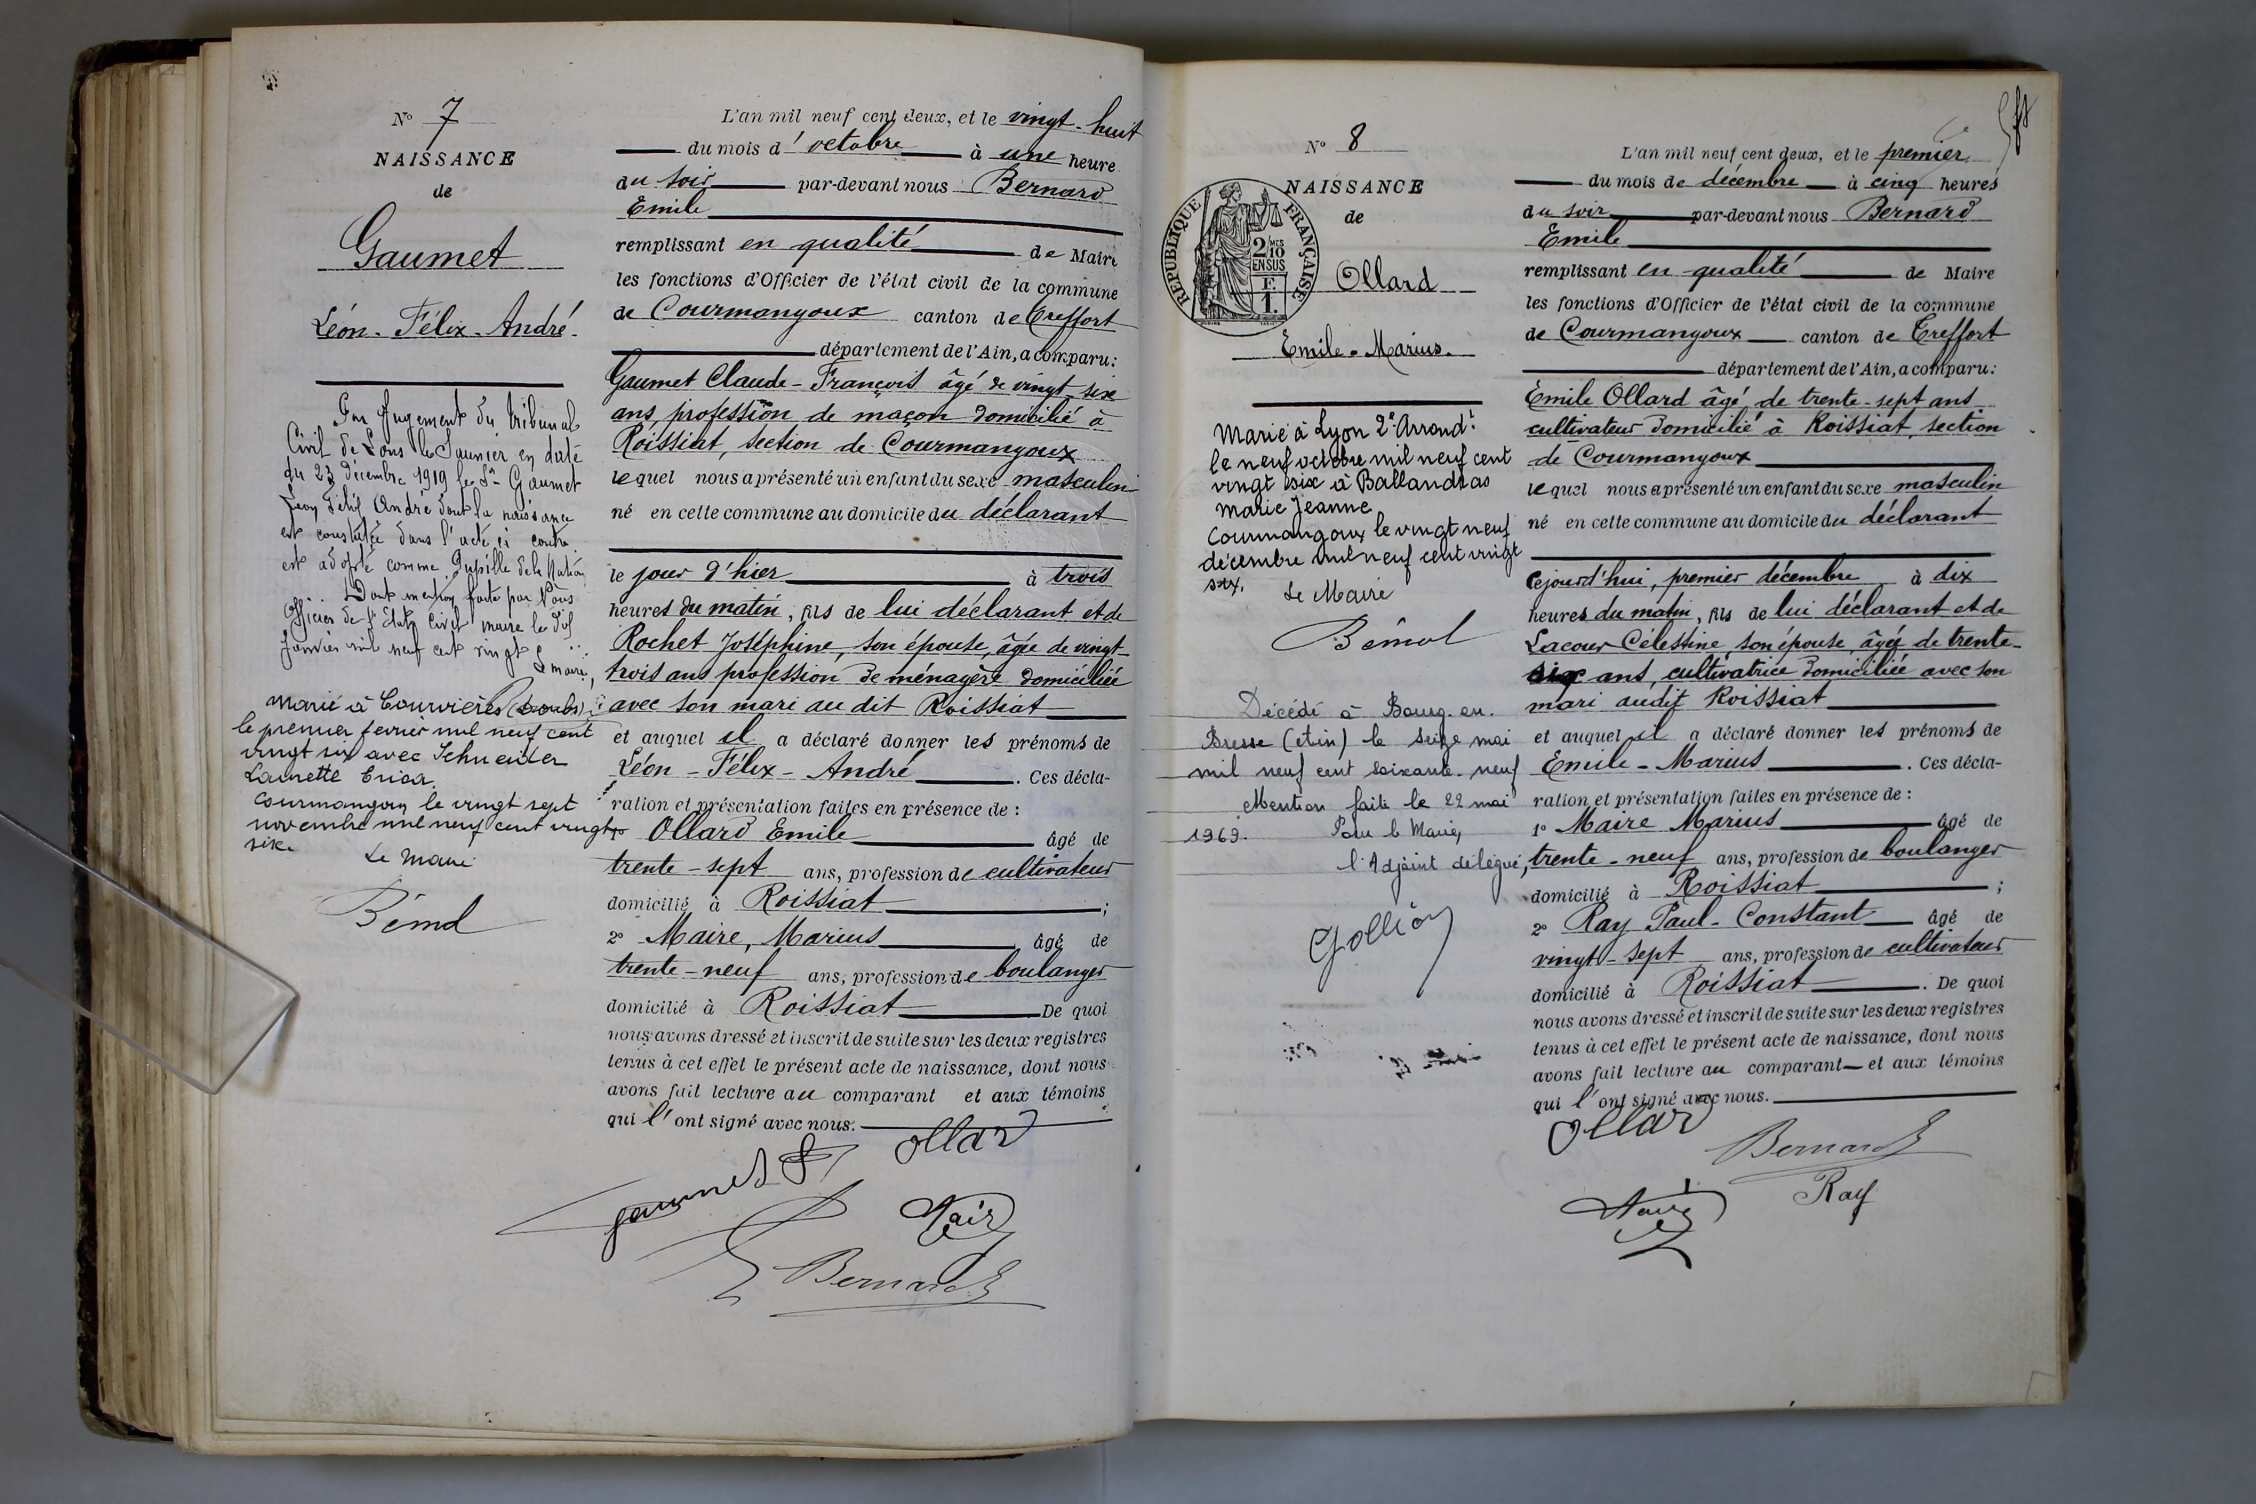 N° 7
NAISSANCE
de
Gaumet
Léon-Félix-André
Par Jugement du tribunal
Civil de Lons le Saunier en date
du 23 décembre 1919 le Sr Gaumet
Léon Félix André dont la naissance
est constatée dans l'acte ci contre
est adopté comme Pupille de la Nation
Dont mention faite par Nous
Officier de l'État Civil maire le dix
Janvier mil neuf cent vingt
Le maire,
Marié à Courvières (Doubs)
le premier fevrier mil neuf cent
vingt six avec Schneider
Laurette Erica.
Courmangoux le vingt sept
novembre mil neuf cent vingt
six.
Le Maire
L'an mil neuf cent deux, et le vingt-huit
du mois d'octobre à une heure
du soir par-devant nous Bernard
Emile
remplissant en qualité de Maire
les fonctions d'Officier de l'état civil de la commune
de Courmangoux canton de Treffort
département de l'Ain, a comparu:
Gaumet Claude-François âgé de vingt-six
ans, profession de maçon domicilié à
Roissiat, section de Courmangoux
lequel nous a présenté un enfant du sexe masculin
né en cette commune au domicile du déclarant
le jour d'hier à trois
heures du matin, fils de lui déclarant et de
Rochet Joséphine, son épouse, âgée de vingt-
trois ans profession de ménagère domiciliée
avec son mari au dit Roissiat
et auquel il a déclaré donner les prénoms de
Léon-Félix-André. Ces décla-
ration et présentation faites en présence de:
1° Ollard Emile âgé de
trente-sept ans, profession de cultivateur
domicilié à Roissiat;
2° Maire, Marius âgé de
trente-neuf ans, profession de boulanger
domicilié à Roissiat De quoi
nous avons dressé et inscrit de suite sur les deux registres
tenus à cet effet le présent acte de naissance, dont nous
avons fait lecture au comparant et aux témoins
qui l'ont signé avec nous.
Ollard
Gaumet
Maire
Bernard E
N° 8
NAISSANCE
de
RÉPUBLIQUE FRANÇAISE
2/10 EN SUS
F. 1.
Ollard
Emile-Marius.
Marié à Lyon 2e Arrondt
le neuf octobre mil neuf cent
vingt six à Ballandras
Marie Jeanne
Courmangoux le vingt neuf
décembre mil neuf cent vingt
six.
Le Maire
Décédé à Bourg-en-
Bresse (Ain) le seize mai
mil neuf cent soixante-neuf
Mention faite le 22 mai
1969.
Pour le Maire,
l'Adjoint délégué,
L'an mil neuf cent deux, et le premier
du mois de décembre à cinq heures
du soir par-devant nous Bernard
Emile
remplissant en qualité de Maire
les fonctions d'Officier de l'état civil de la commune
de Courmangoux canton de Treffort
département de l'Ain, a comparu:
Emile Ollard âgé de trente-sept ans
cultivateur domicilié à Roissiat, section
de Courmangoux
lequel nous a présenté un enfant du sexe masculin
né en cette commune au domicile du déclarant
Cejourd'hui, premier décembre à dix
heures du matin, fils de lui déclarant et de
Lacour Célestine, son épouse, âgée de trente-
six ans, cultivatrice domiciliée avec son
mari audit Roissiat
et auquel il a déclaré donner les prénoms de
Emile-Marius. Ces décla-
ration et présentation faites en présence de:
1° Maire Marius âgé de
trente-neuf ans, profession de boulanger
domicilié à Roissiat;
2° Ray Paul-Constant âgé de
vingt-sept ans, profession de cultivateur
domicilié à Roissiat. De quoi
nous avons dressé et inscrit de suite sur les deux registres
tenus à cet effet le présent acte de naissance, dont nous
avons fait lecture au comparant et aux témoins
qui l'ont signé avec nous.
Ollard
Bernard E
Maire
Ray